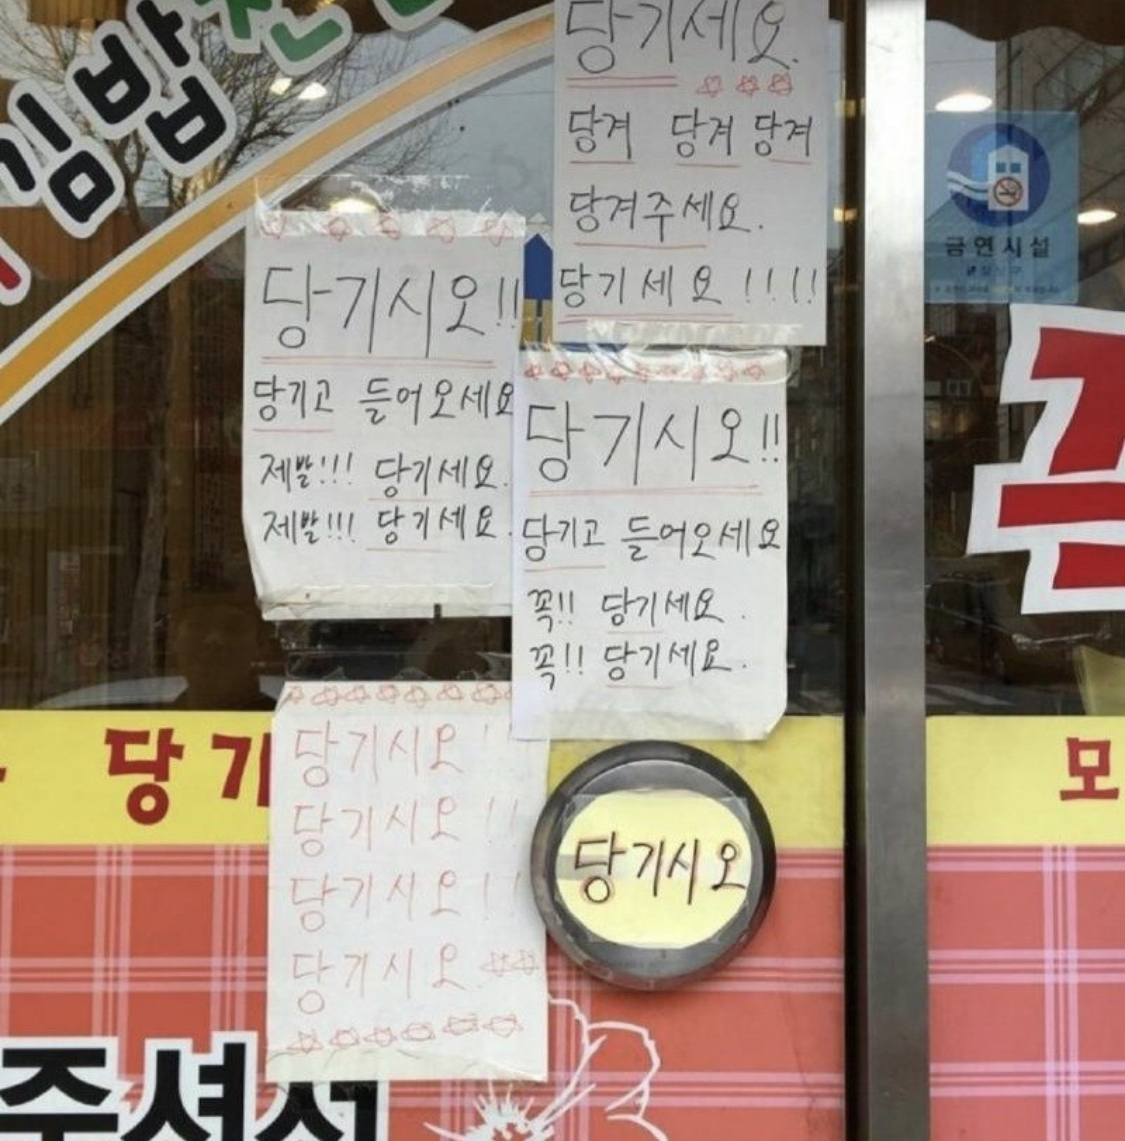 김밥천
당기세요.
당겨 당겨 당겨
당겨주세요.
당기세요!!!!
금연시설
당기시오!!
당기고 들어오세요
제발!!! 당기세요.
제발!!! 당기세요.
당기시오!!
당기고 들어오세요
꼭!! 당기세요.
꼭!! 당기세요.
당기
당기시오!!
당기시오!!
당기시오!!
당기시오
당기시오
모
주셔서